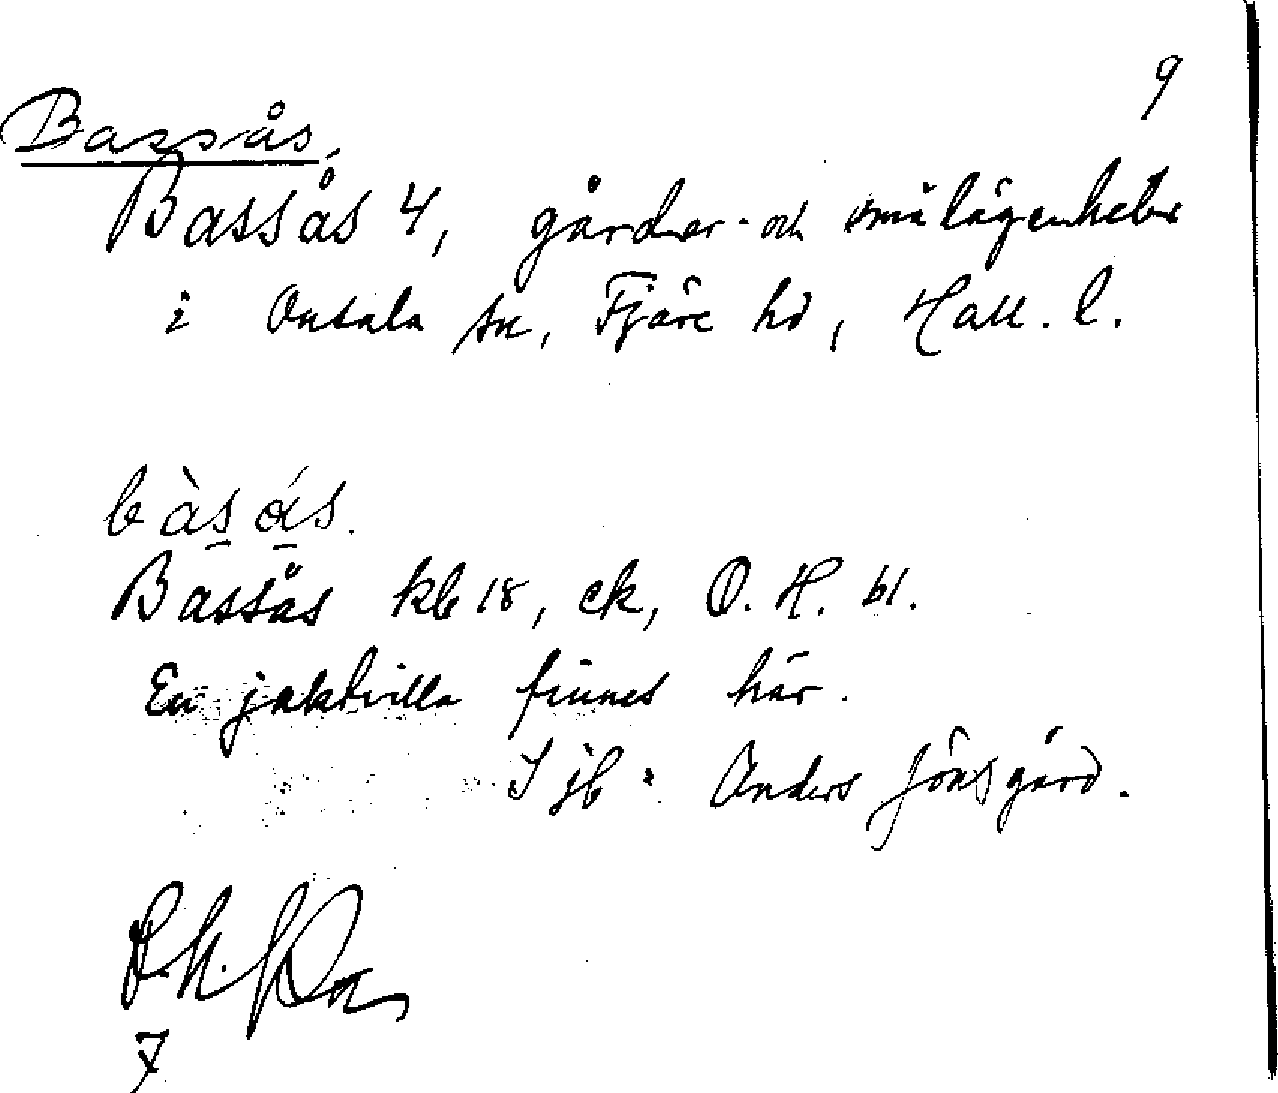 9
Bassås.
Bassås 4, gårdar och smålägenheter
i Onsala sn, Fjäre hd, Hall. l.
bàs ás.
Bassås kb 18, ek, O. H. bl.
En jaktvilla finnes här.
I jb: Anders Jönsgård.
7